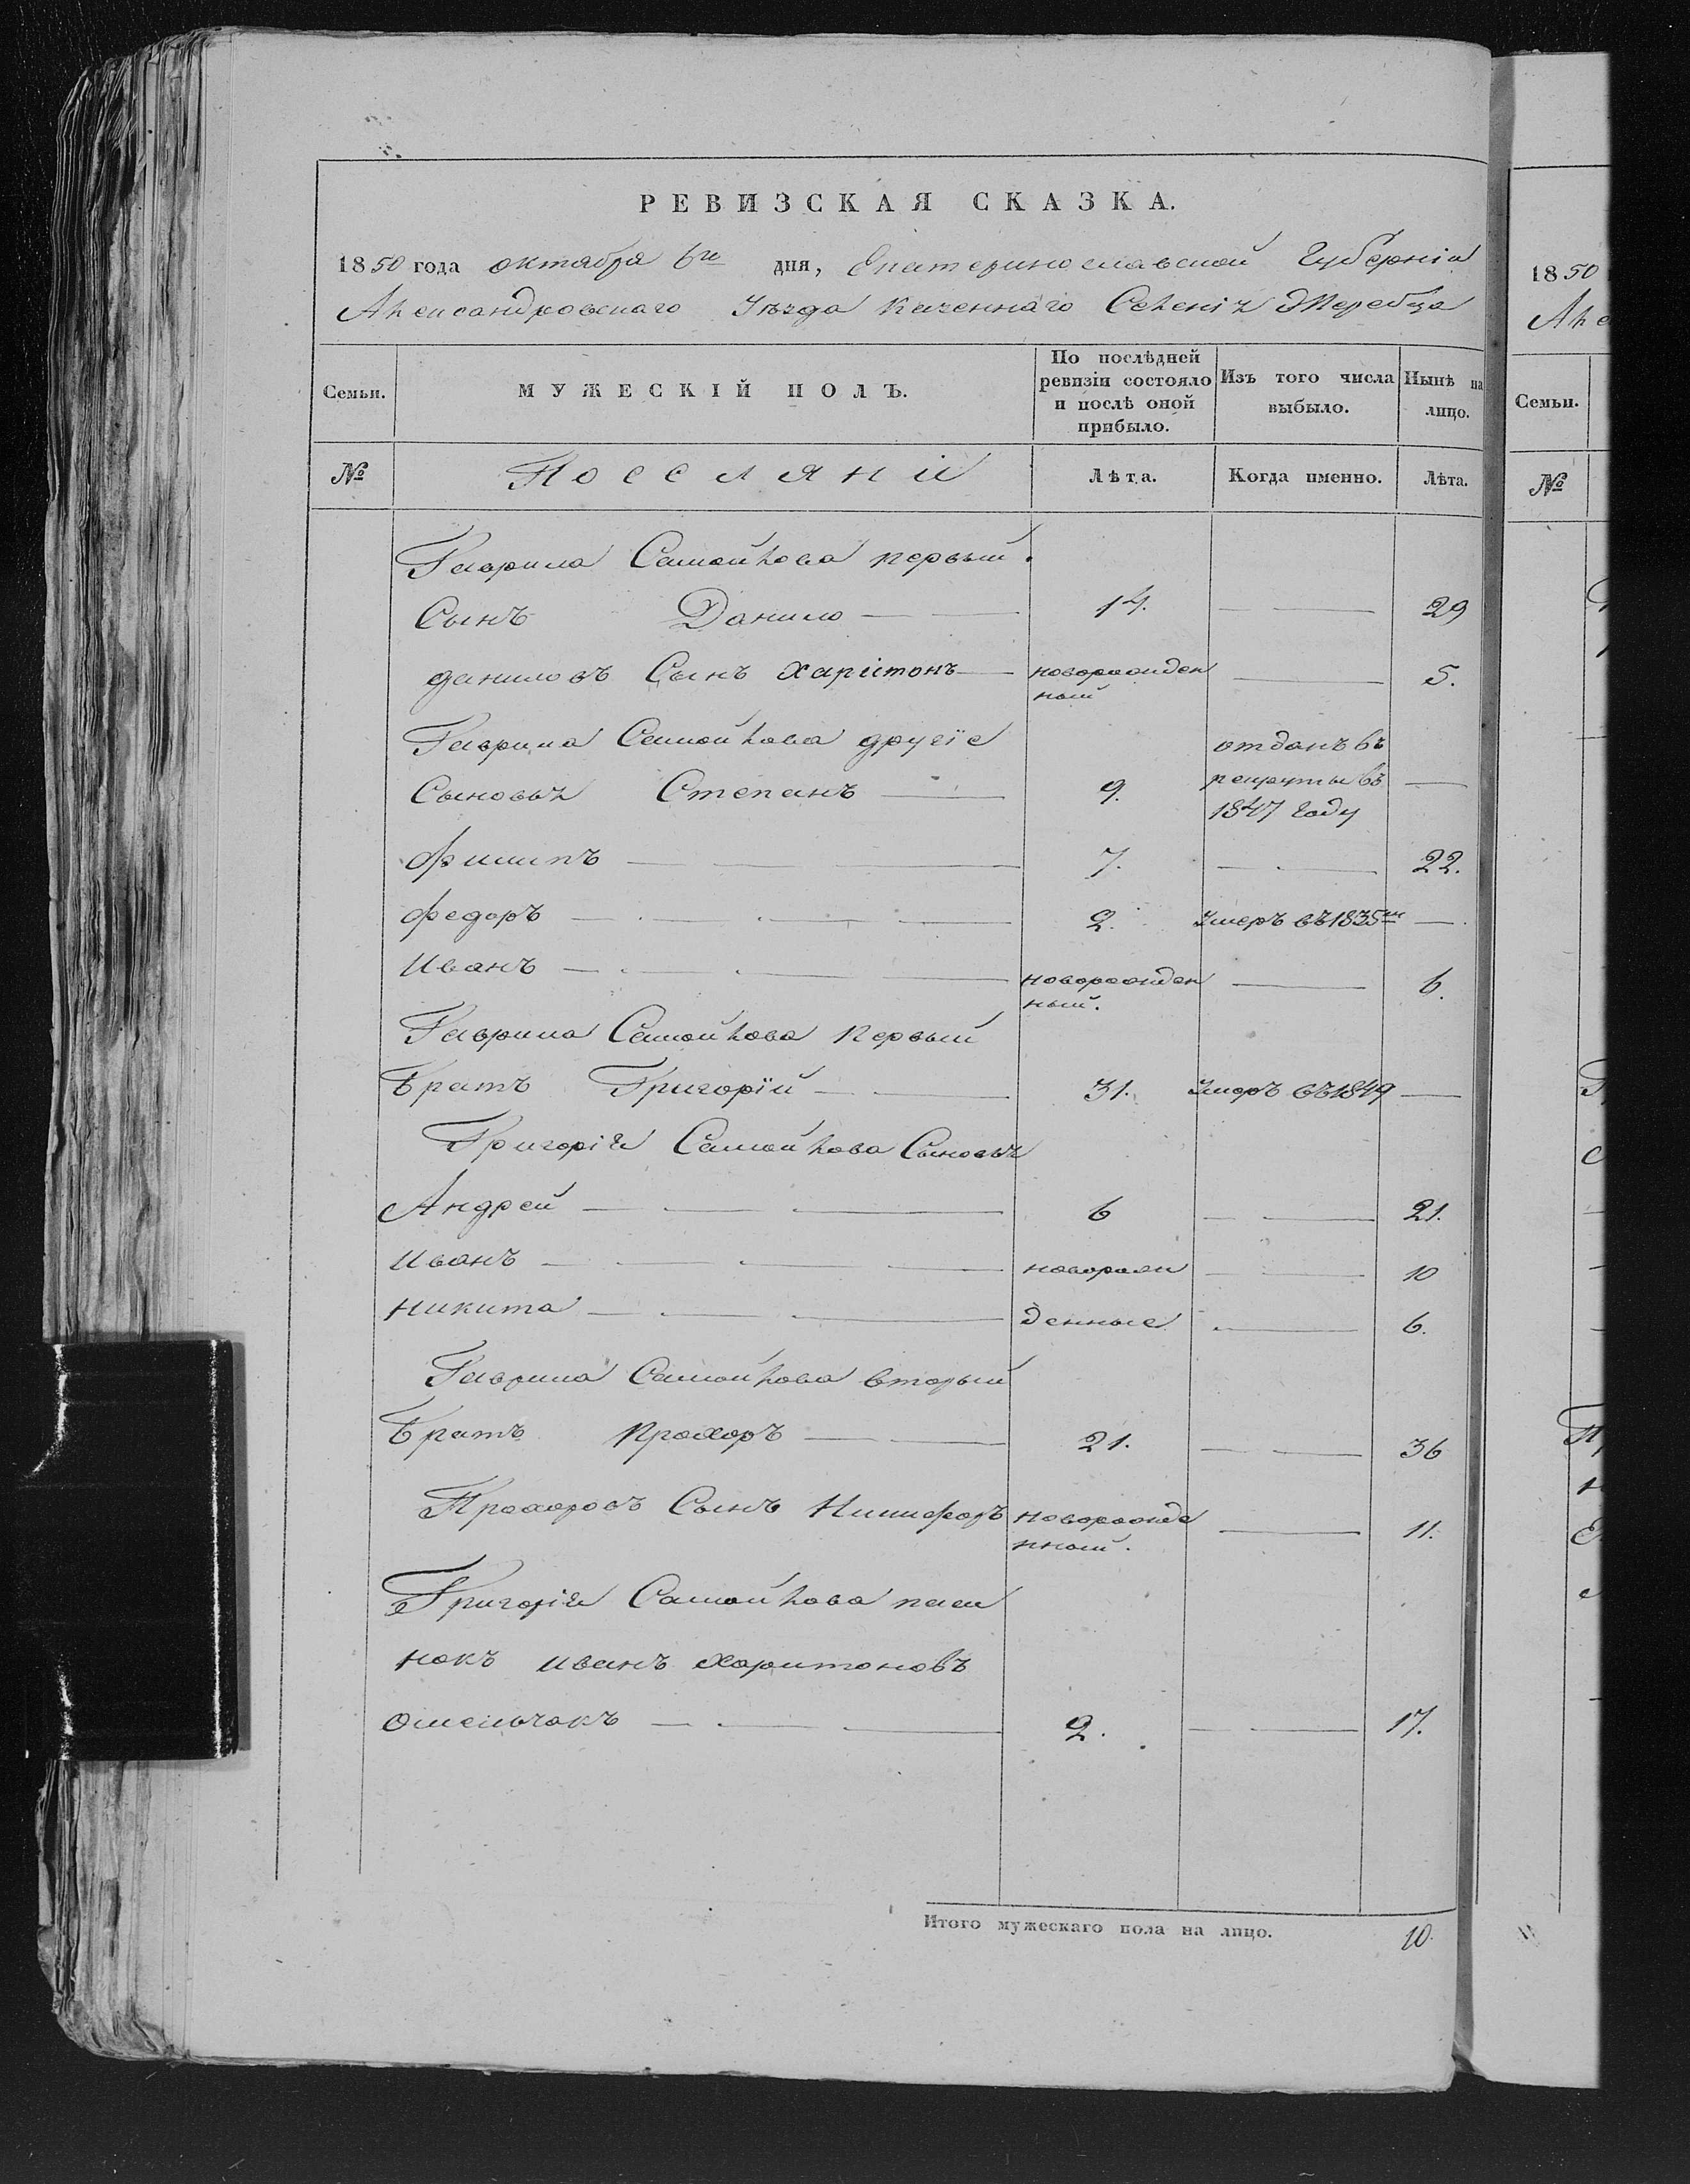 РЕВИЗСКАЯ СКАЗКА.
1850 года октября 6го дня, Екатеринославской Губерніи
Александровскаго Уѣзда Казеннаго Селенія Жеребца
Семьи. МУЖЕСКІЙ ПОЛЪ. По послѣдней ревизіи состояло и послѣ оной прибыло. Изъ того числа выбыло. Нынѣ на лицо.
№ Поселяни Лѣта. Когда именно. Лѣта.
Гаврила Самойлова первый.
Сынъ Данило — 14. — 29
даниловъ Сынъ Харітонъ — новорожден — 5.
ный
Гаврила Самойлова другіе
отданъ въ
Сыновья Степанъ — 9. рекруты въ —
1847 году
Филипъ — 7. — 22.
Федоръ — 2. Умеръ въ 1835мъ —
Иванъ — новорожден — 6.
ный.
Гаврила Самойлова первый
Братъ Григорій — 31. Умеръ въ 1849 —
Григорія Самойлова Сыновья
Андрей — 6 — 21.
Иванъ — новорож — 10
Никита — денные — 6.
Гаврила Самойлова вторый
Братъ Прохоръ — 21. — 36
Прохоровъ Сынъ Никифоръ новорожде — 11.
нный.
Григорія Самойлова пасы
нокъ Иванъ Харитоновъ
Омельчакъ — 2. — 17.
Итого мужескаго пола на лицо. 10.
1850
Але
Семьи.
№